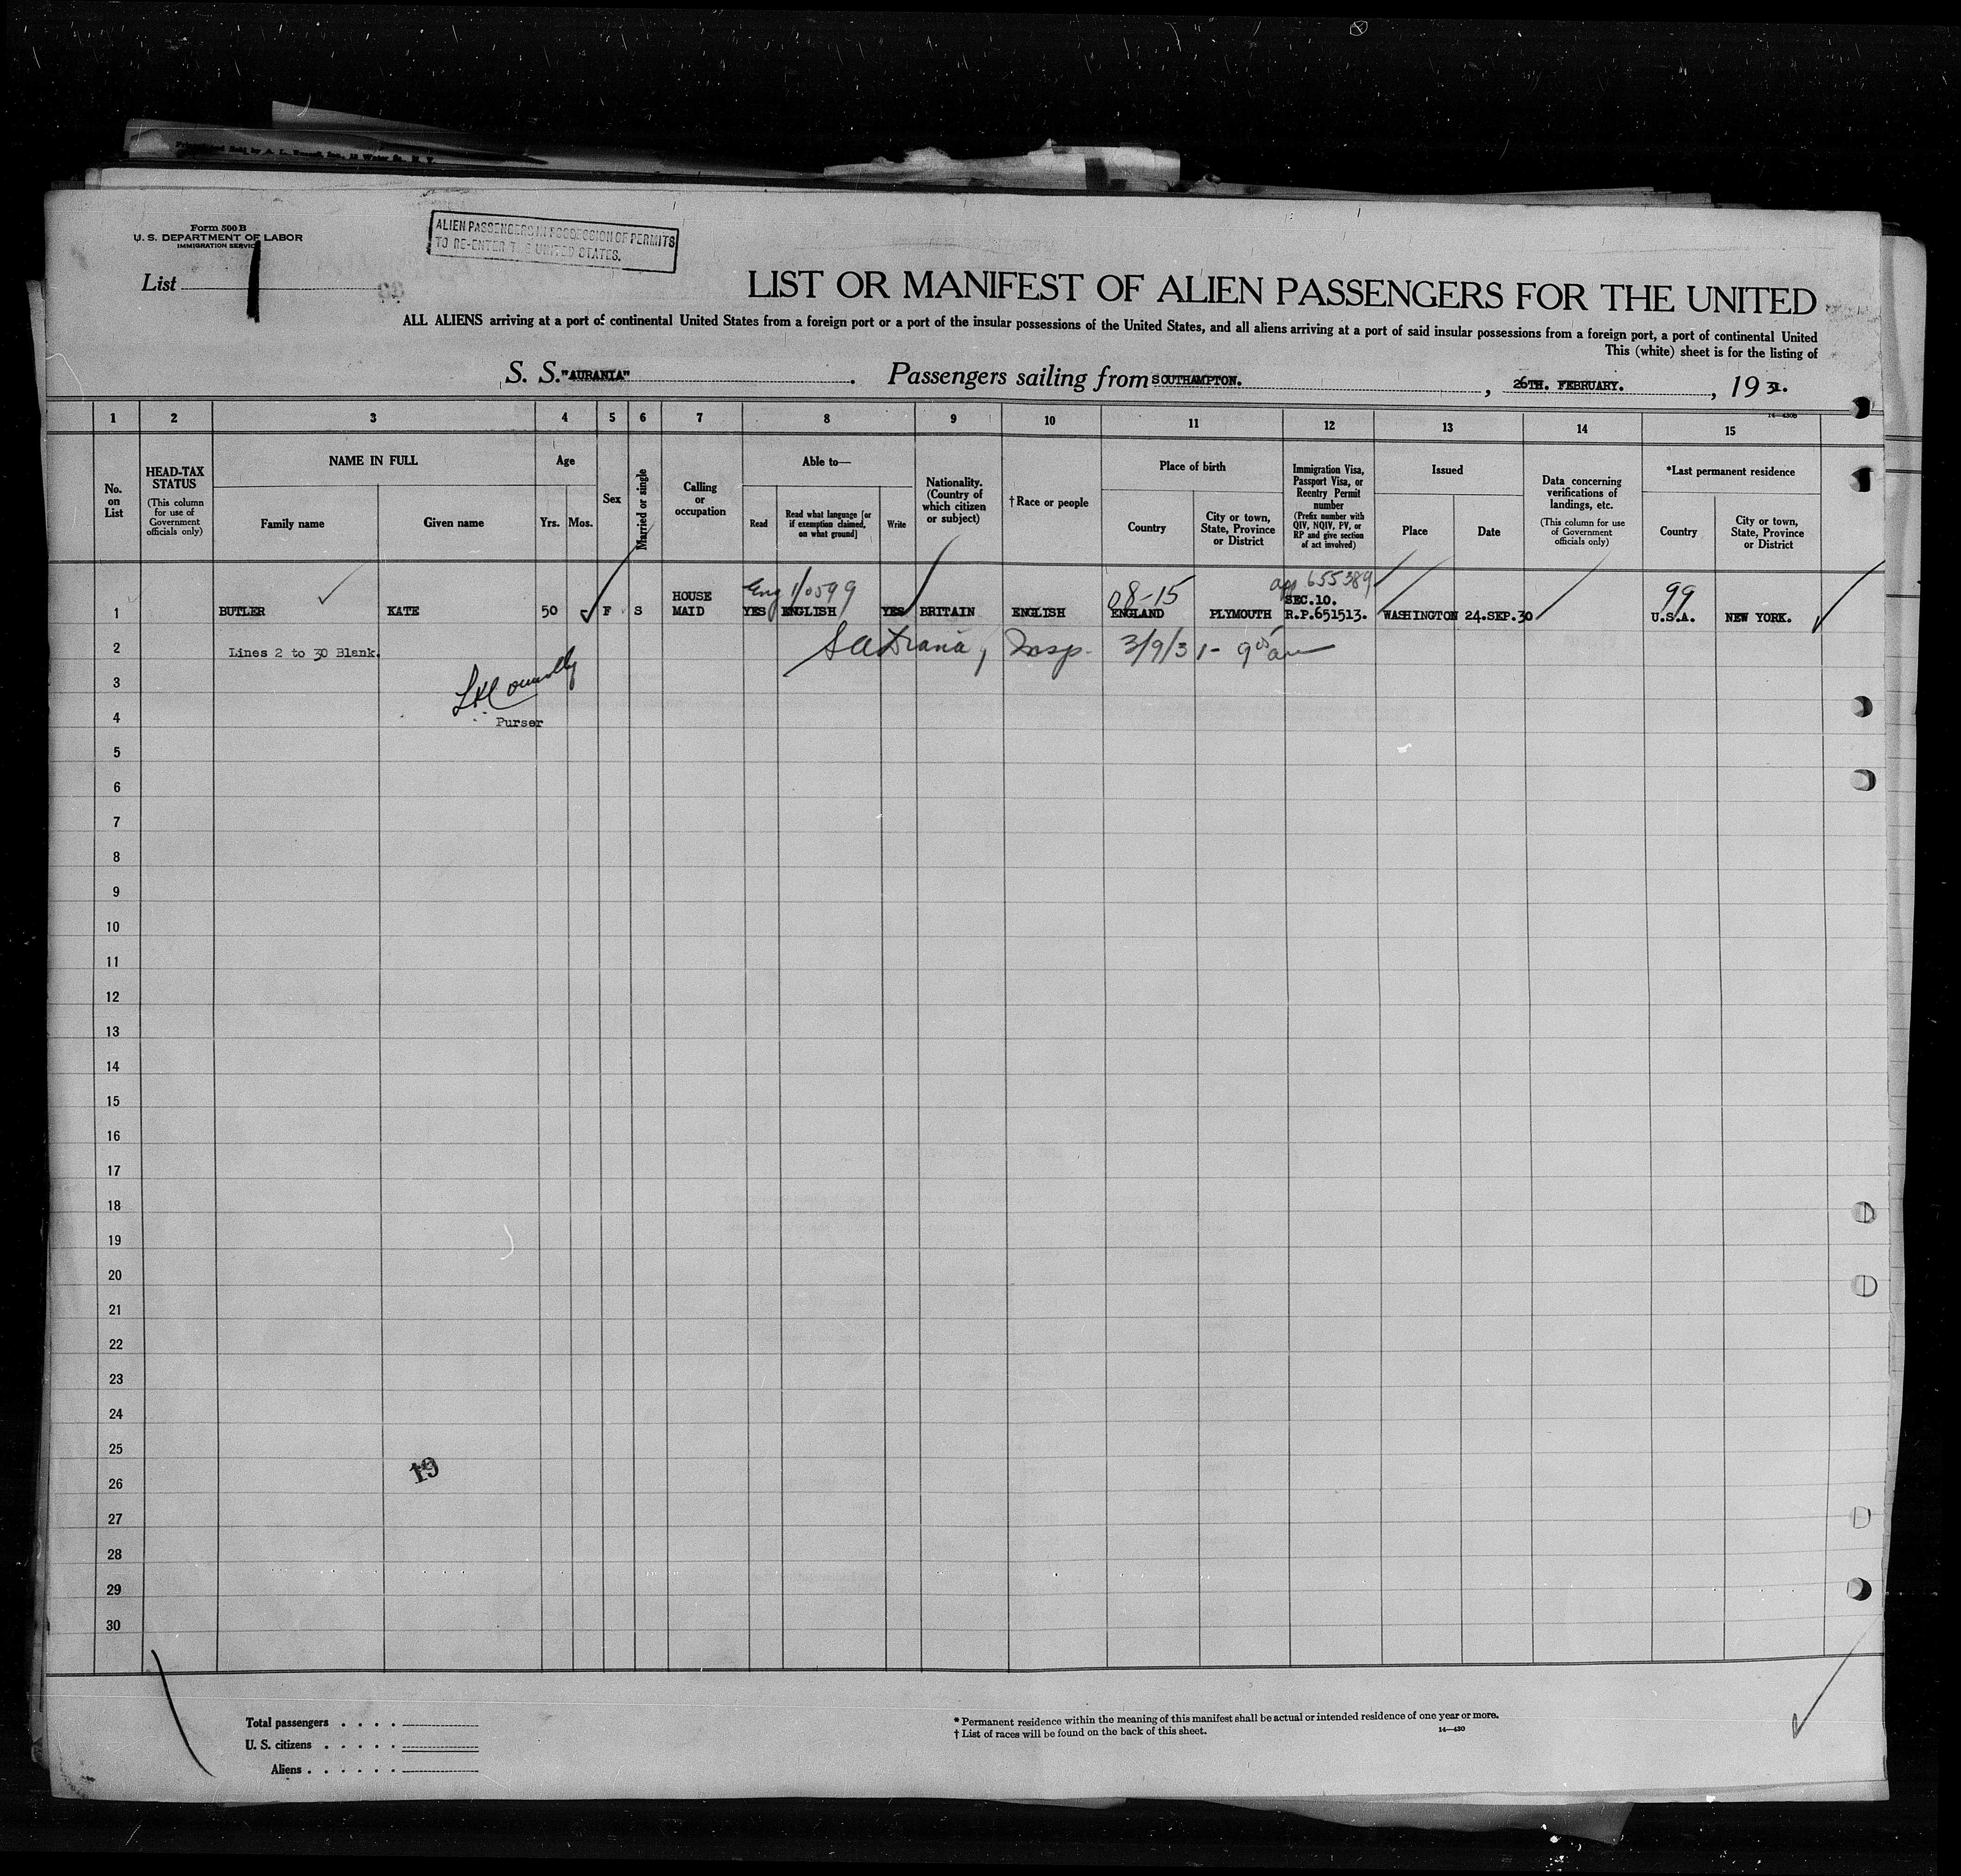 Form 500 B
U. S. DEPARTMENT OF LABOR
IMMIGRATION SERVICE
ALIEN PASSENGERS IN POSSESSION OF PERMITS
TO RE-ENTER THE UNITED STATES.
List 1
LIST OR MANIFEST OF ALIEN PASSENGERS FOR THE UNITED
ALL ALIENS arriving at a port of continental United States from a foreign port or a port of the insular possessions of the United States, and all aliens arriving at a port of said insular possessions from a foreign port, a port of continental United
This (white) sheet is for the listing of
S. S. "AURANIA" . Passengers sailing from SOUTHAMPTON. , 26TH. FEBRUARY. , 19 31.
14—430B
1 2 3 4 5 6 7 8 9 10 11 12 13 14 15
No. on List
HEAD-TAX STATUS
(This column for use of Government officials only)
NAME IN FULL
Family name
Given name
Age
Yrs.
Mos.
Sex
Married or single
Calling or occupation
Able to—
Read
Read what language [or if exemption claimed, on what ground]
Write
Nationality. (Country of which citizen or subject)
†Race or people
Place of birth
Country
City or town, State, Province or District
Immigration Visa, Passport Visa, or Reentry Permit number
(Prefix number with QIV, NQIV, PV, or RP and give section of act involved)
Issued
Place
Date
Data concerning verifications of landings, etc.
(This column for use of Government officials only)
*Last permanent residence
Country
City or town, State, Province or District
Eng 1/0599 08-15 655389 99
HOUSE SEC.10.
1 BUTLER KATE 50 F S MAID YES ENGLISH YES BRITAIN ENGLISH ENGLAND PLYMOUTH R.P.651513. WASHINGTON 24.SEP.30 U.S.A. NEW YORK.
2 Lines 2 to 30 Blank. Insp. 3/9/31 - 9 05 am
3
4 Purser
5
6
7
8
9
10
11
12
13
14
15
16
17
18
19
20
21
22
23
24
25
26 19
27
28
29
30
Total passengers . . . .
U. S. citizens . . . . .
Aliens . . . . . .
* Permanent residence within the meaning of this manifest shall be actual or intended residence of one year or more.
† List of races will be found on the back of this sheet. 14—430